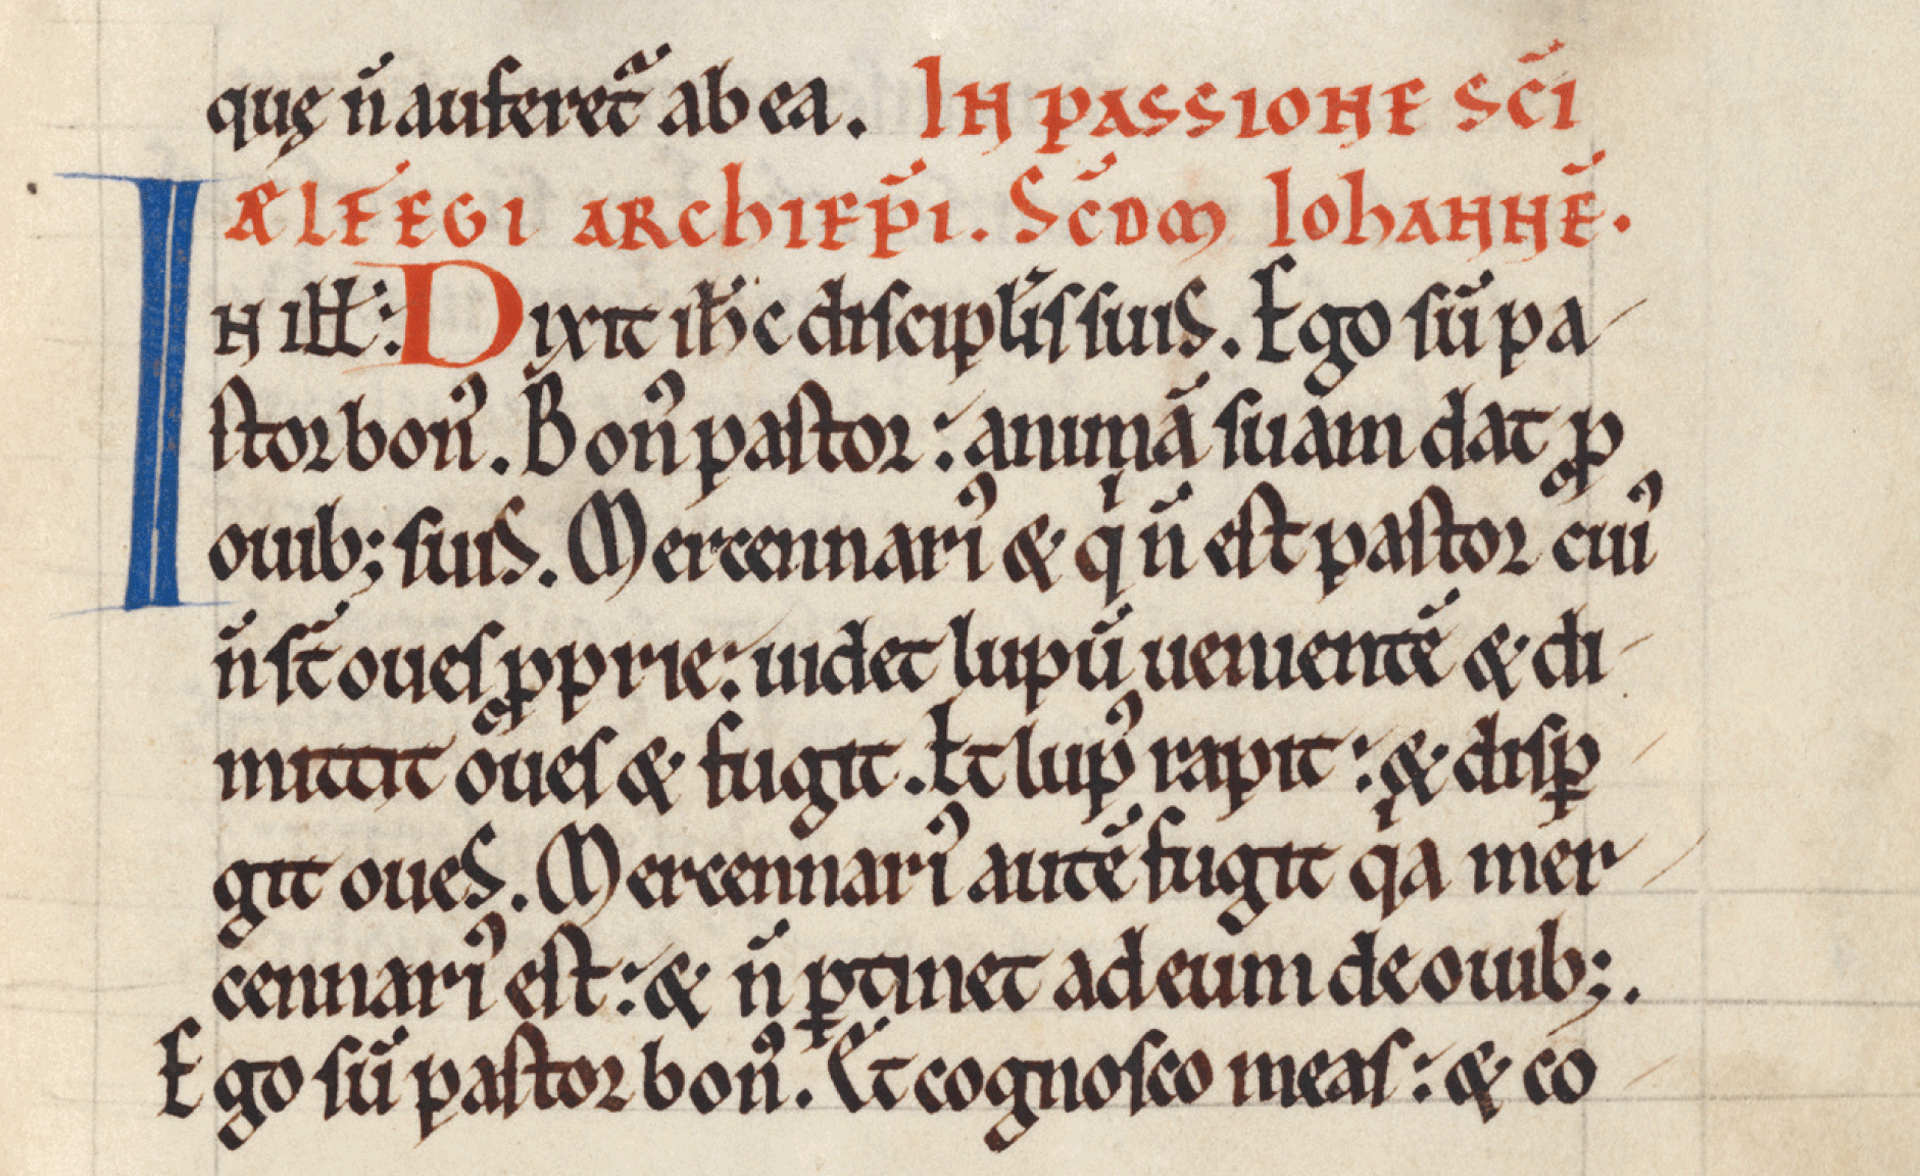 quę n̄ auferet᷑ ab ea. IN PASSIONE SC̄I
ÆLFEGI ARCHIEP̄I. SC̄DM IOhANNĒ.
IN ill̄: Dixit ih̄c discipl̄is suis. Ego sū pa-
stor bonꝰ. Bonꝰ pastor: animā suam dat ꝓ
ouib; suis. Mercennariꝰ & qⁱ n̄ est pastor cuiꝰ
n̄ st̄ oues ꝓprie: uidet lupū uenientē & di-
mittit oues & fugit. Et lupꝰ rapit: & disꝑ-
git oues. Mercennariꝰ autē fugit qⁱa mer-
cennariꝰ est: & n̄ ꝑtinet ad eum de ouib;.
Ego sū pastor bonꝰ. Et cognosco meas: & co-